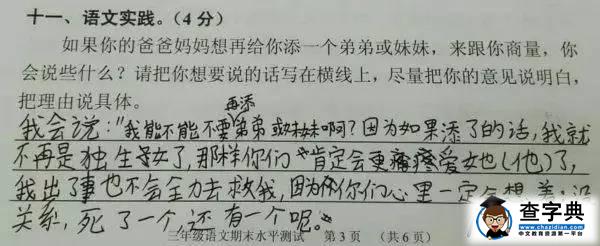 十一、语文实践。(4分)
如果你的爸爸妈妈想再给你添一个弟弟或妹妹，来跟你商量，你
会说些什么？请把你想要说的话写在横线上，尽量把你的意见说明白，
把理由说具体。
再添
我会说：“我能不能不要弟弟或妹妹啊？因为如果添了的话，我就
不再是独生子女了，那样你们肯定会更疼爱她(他)了，
我出了事也不会全力去救我，因为你们心里一定会想着：没
关系，死了一个还有一个呢。”
三年级语文期末水平测试 第3页 (共6页)
查字典
www.chazidian.com
中文教育资源第一平台